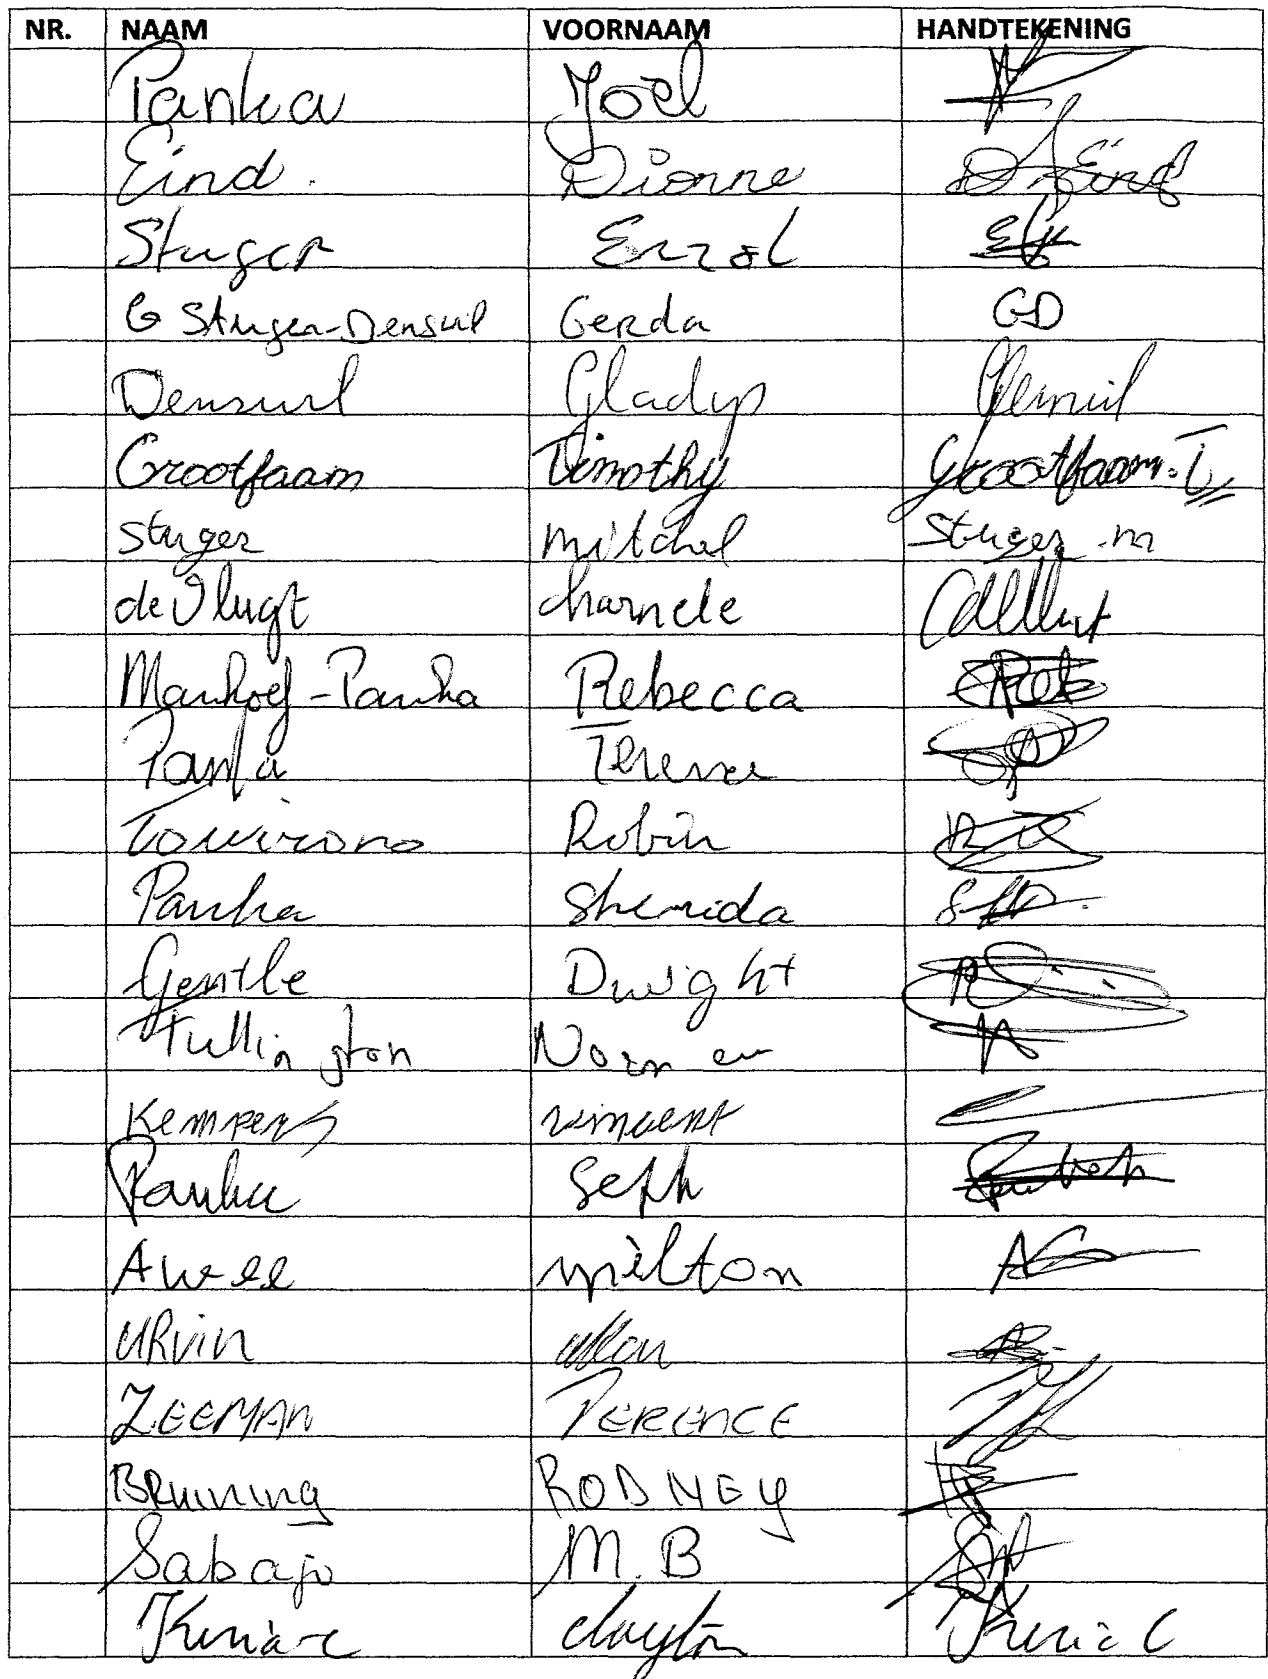 NR. NAAM VOORNAAM HANDTEKENING
Panka Joël
Eind. Dionne D Eind
Stuger Errol
G Stuger-Densuil Gerda GD
Densuil Gladys
Grootfaam Timothy Grootfaam. T
Stuger Mitchel Stuger m
de Vlugt charnele
Manhoef-Panka Rebecca
Panka Terence
Towirono Robin
Panka Shemida
Gentle Dwight
Tullington Norman
Kempens vincent
Panka Seph
Awee milton
URVIN
ZEEMAN TERENCE
BRuining RODNEY
Sabajo M.B
clayton